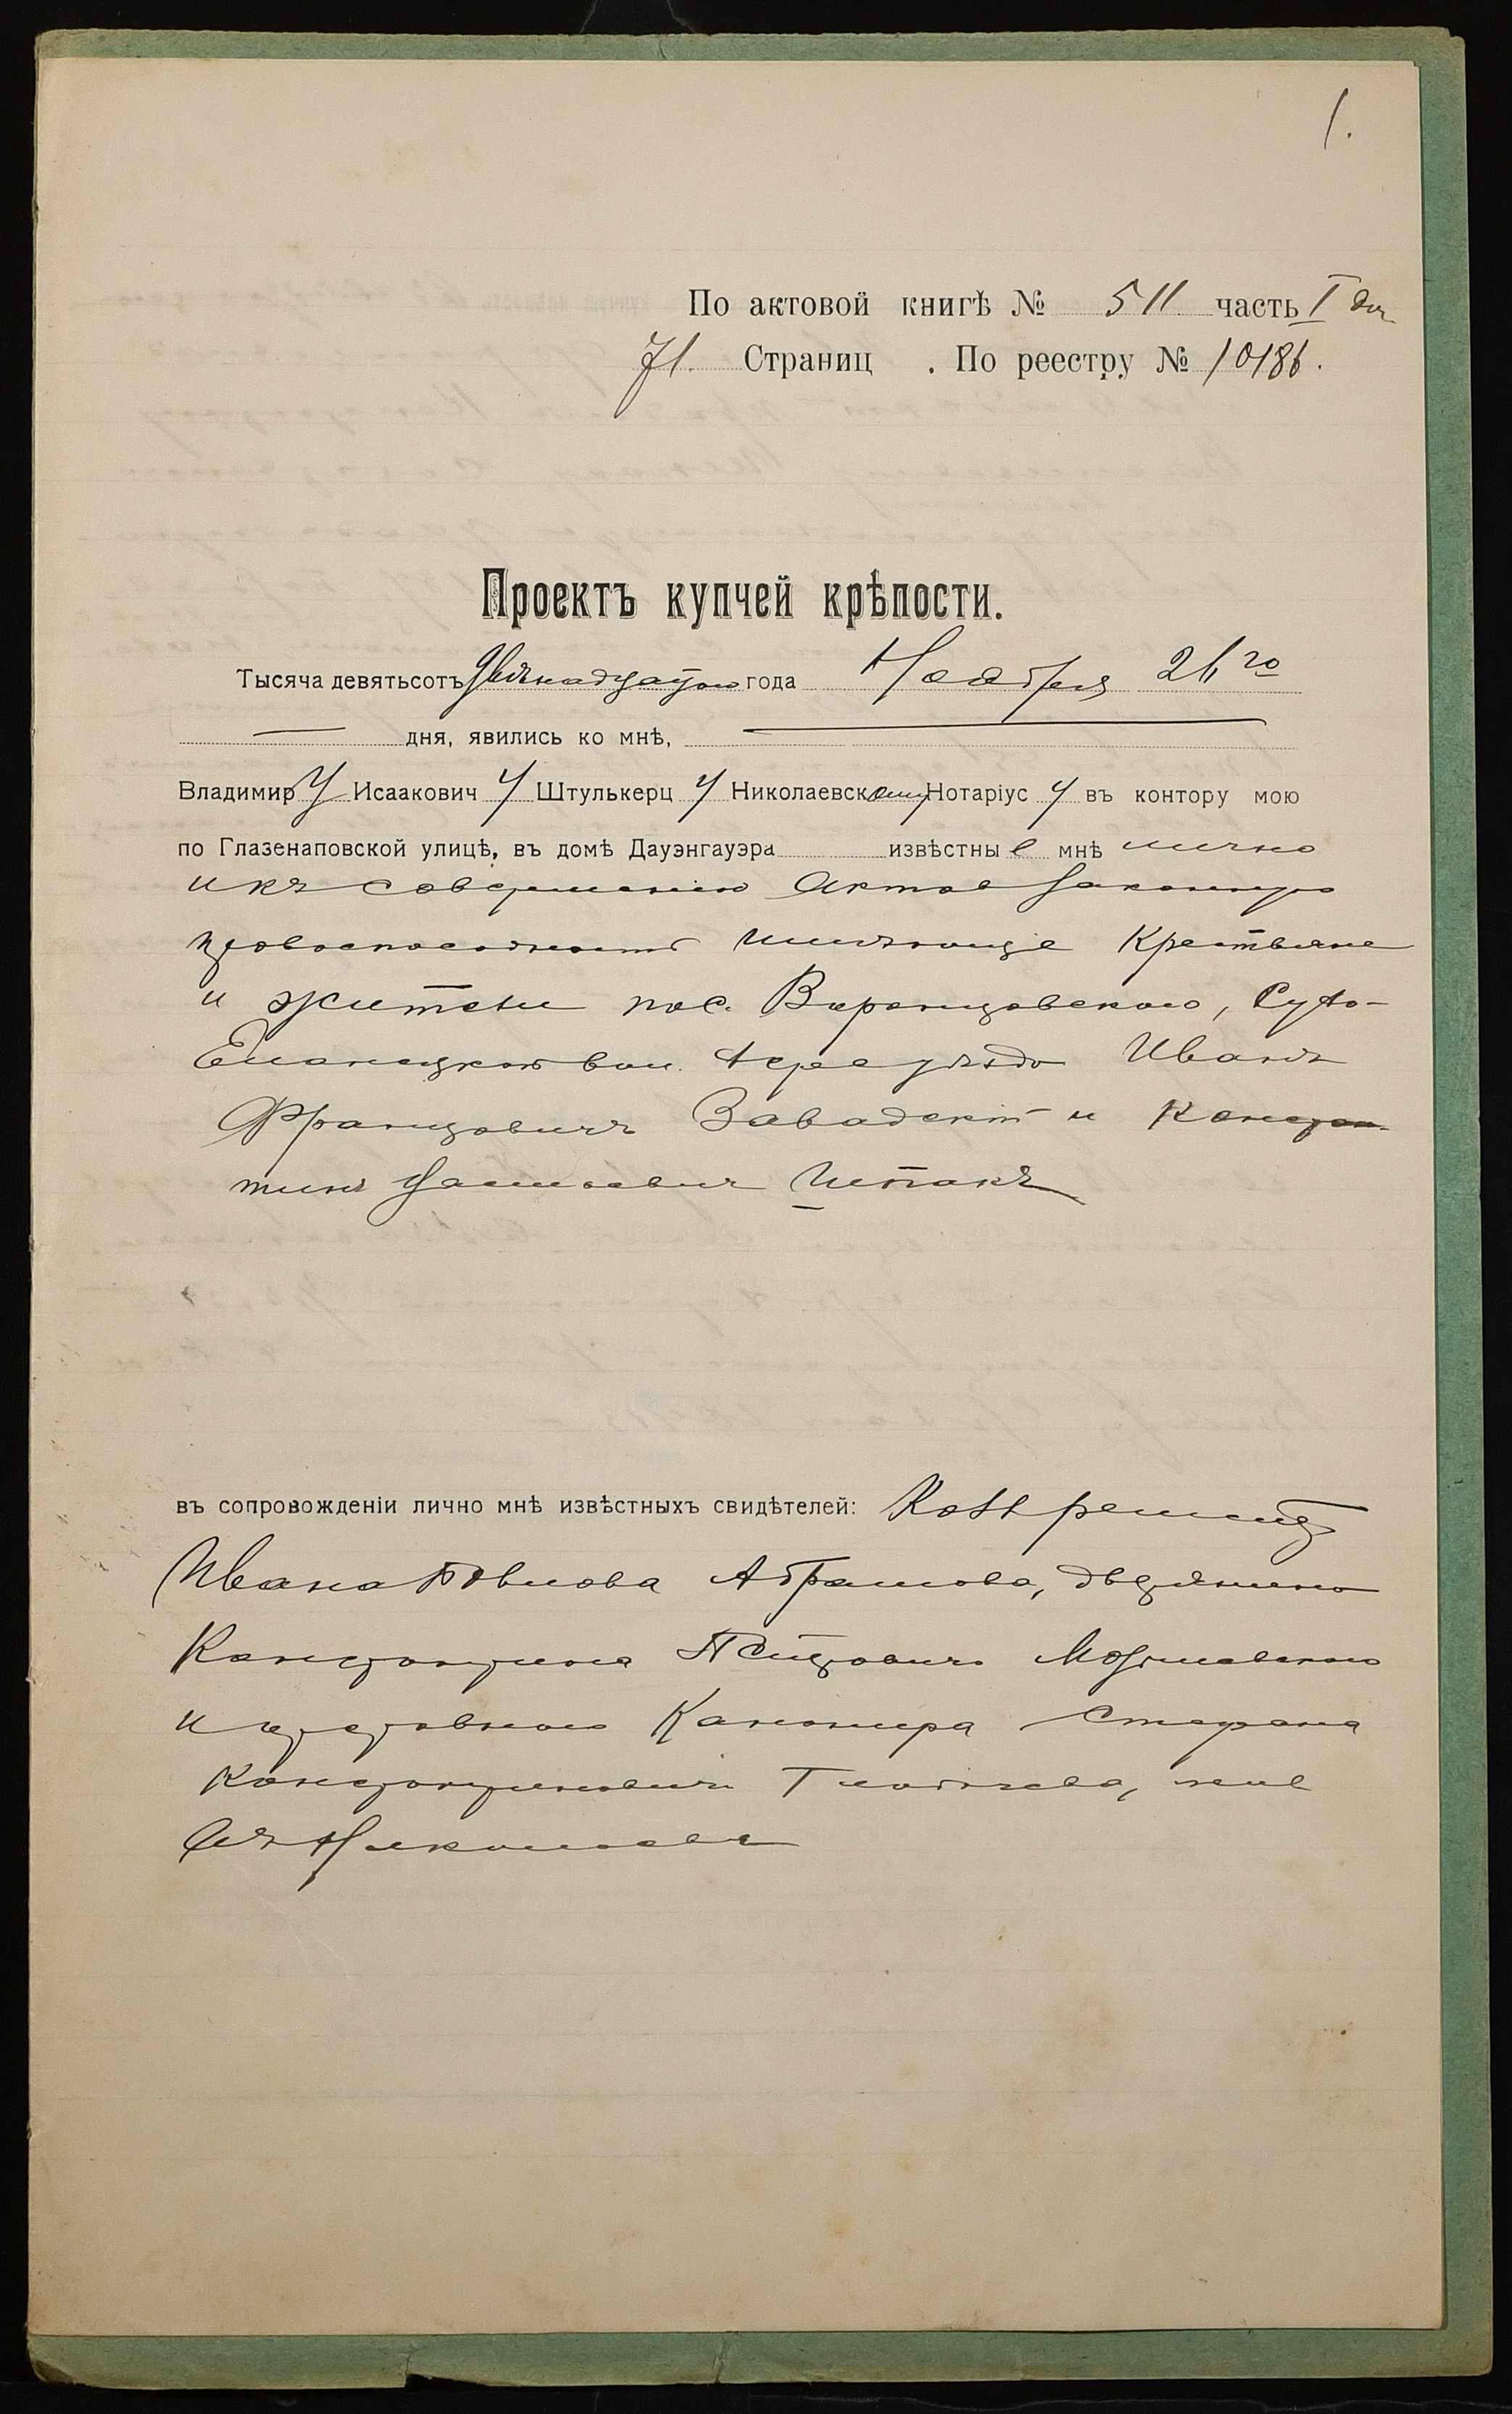 1.
По актовой книгѣ № 511 часть I
71. Страниц . По реестру № 10186.
Проектъ купчей крѣпости.
Тысяча девятьсотъ двѣнадцатого года Ноября 26го
дня, явились ко мнѣ,
Владимир у Исаакович у Штулькерц у Николаевскому Нотаріус у въ контору мою
по Глазенаповской улицѣ, въ домѣ Дауэнгауэра известны е мнѣ лично
и къ совершенію актов законную
правоспособность имѣющіе Крестьяне
и жители пос. Воронцовского,
Еланецкой вол. уѣзда Иванъ
Францовичъ Завадскій и Констан-
тинъ Васильевич Шпакъ
въ сопровожденіи лично мнѣ извѣстныхъ свидѣтелей:
Ивана Абрамова, дворянина
Константина Петровича
и Канонира Стефана
Константиновича жив
въ Николаеве